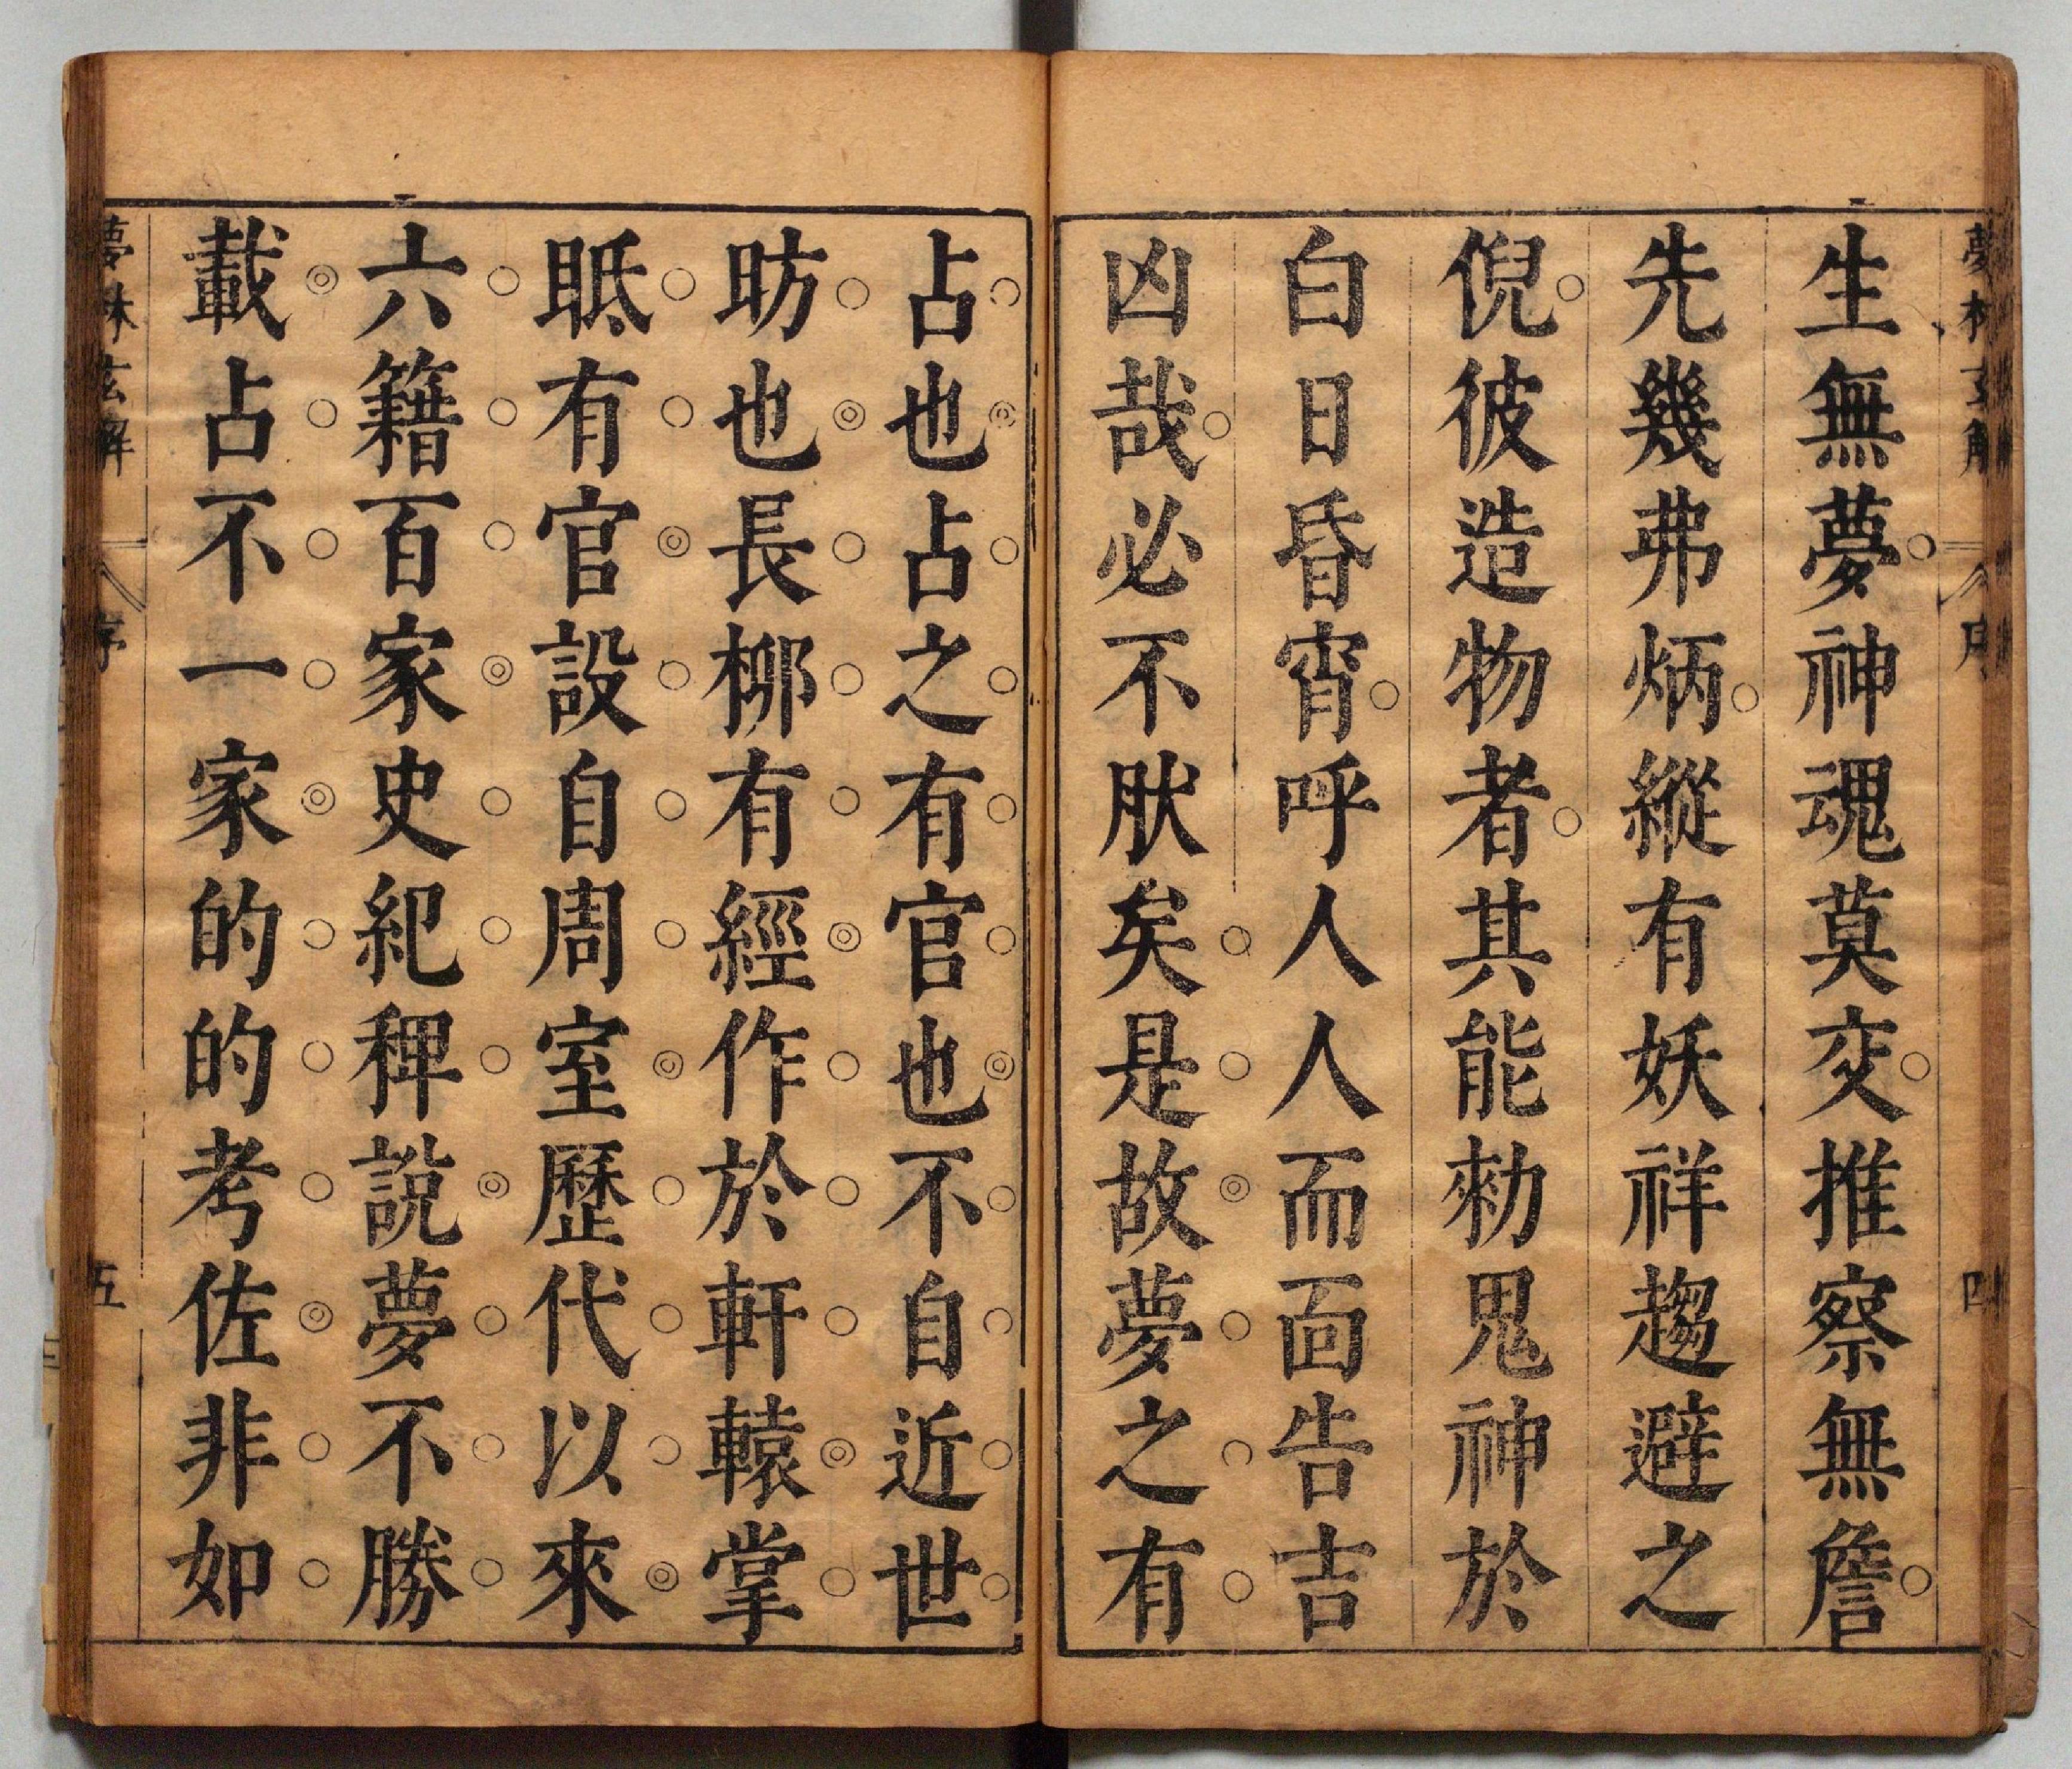 夢林玄解
序
四
生無夢神魂莫交推察無詹
先幾弗炳縱有妖祥趨避之
倪彼造物者其能勑鬼神於
白日昏宵呼人人而面告吉
凶哉必不肰矣是故夢之有
占也占之有官也不自近世
昉也長栁有經作於軒轅掌
眂有官設自周室歷代以來
六籍百家史紀稗說夢不勝
載占不一家的的考佐非如
夢林玄解
序
五